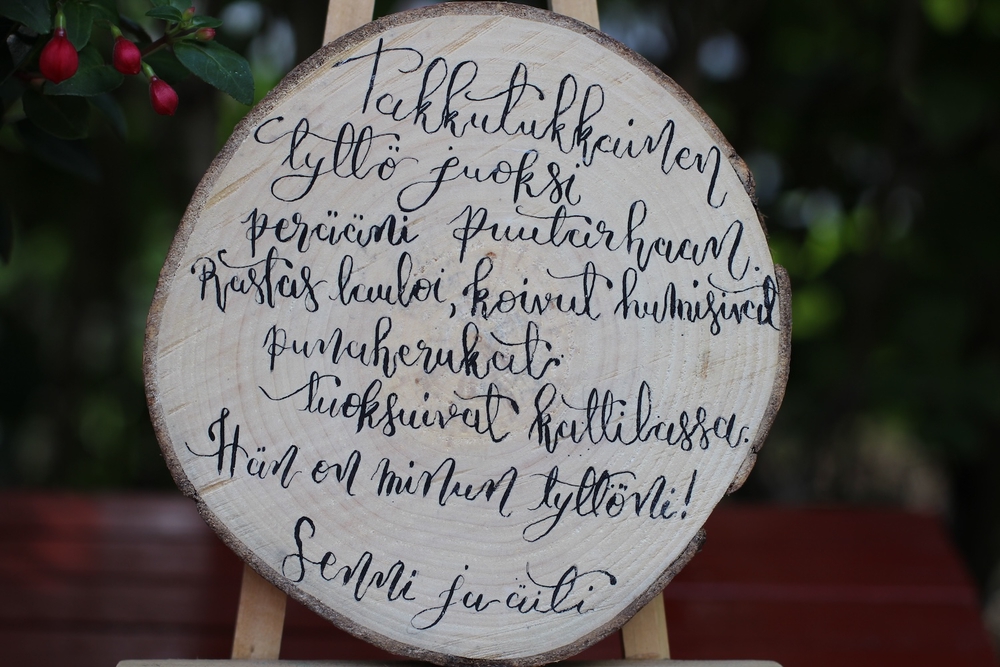 Takkutukkainen
tyttö juoksi
perääni puutarhaan.
Rastas lauloi, koivut humisivat
punaherukat
tuoksuivat kattilassa.
Hän on minun tyttöni!
Senni ja äiti